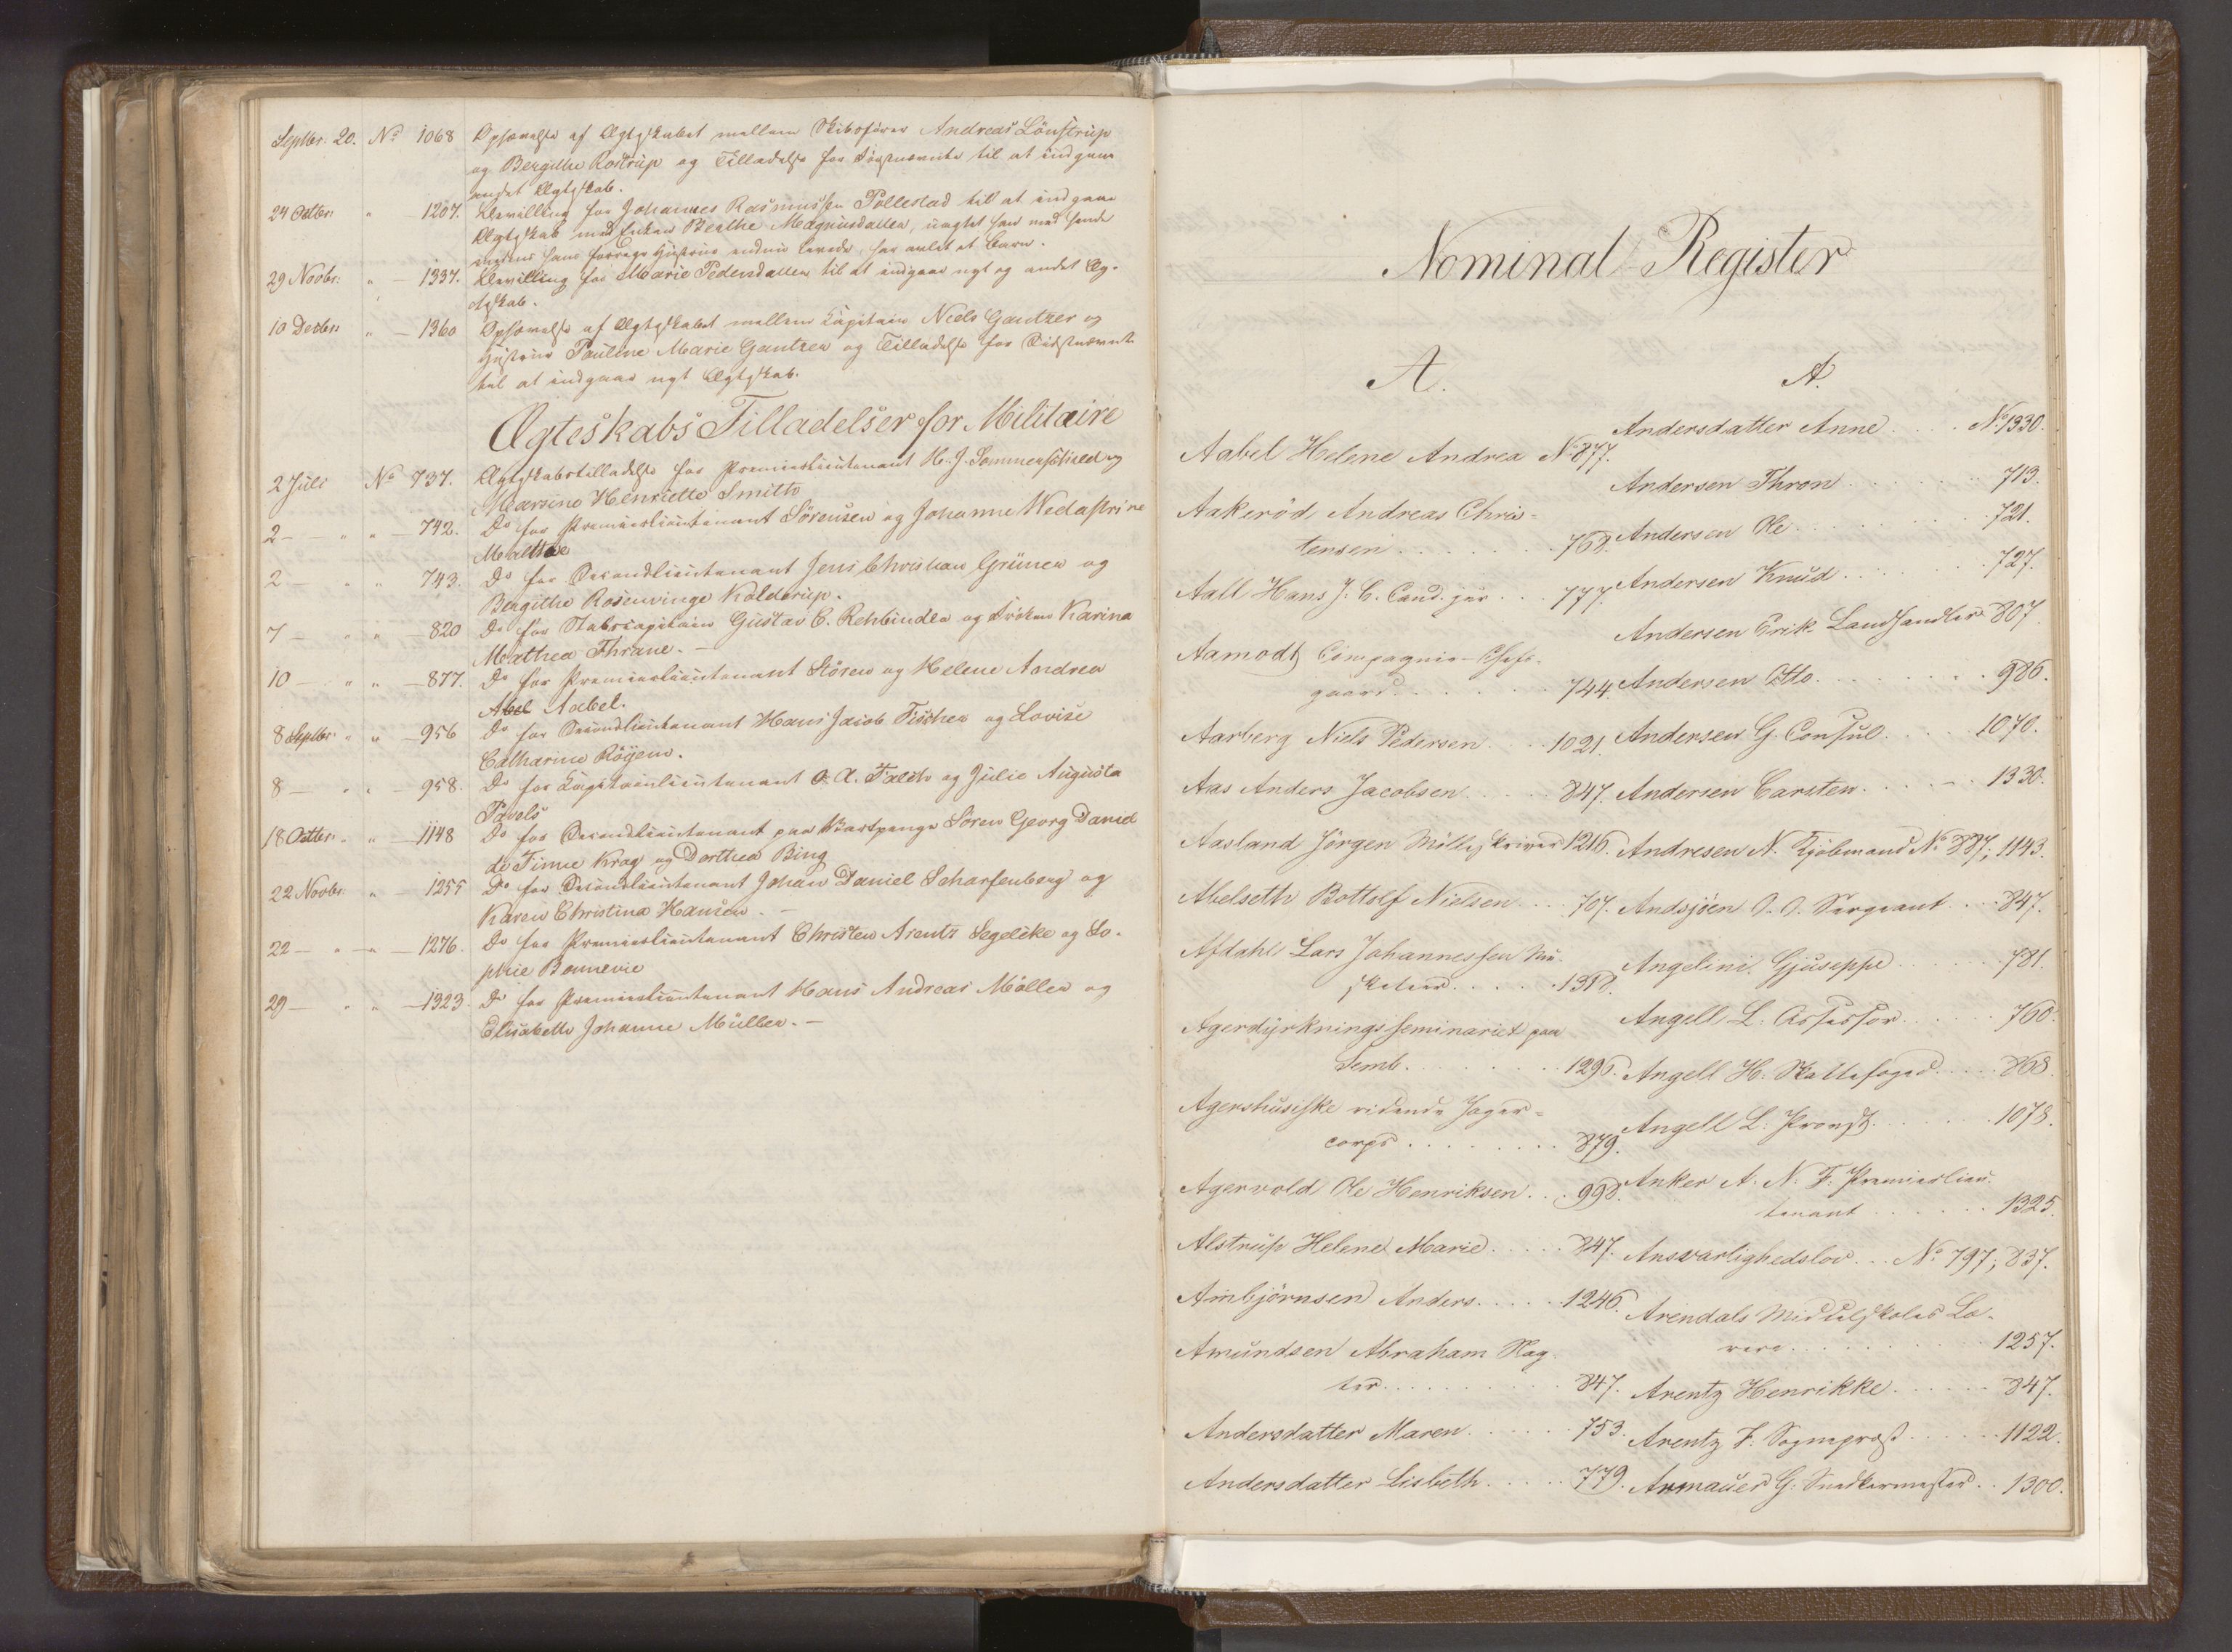 Septbr. 20. No 1068 Ophævelse af Ægteskabet mellem Skibsfører Andreas Lönstrup
og Bergithe Rostrup og Tilladelse for Sidstnævnte til at indgaae
andet Ægteskab.
24 Octbr. " 1207. Bevilling for Johannes Rasmussen Pollestad til at indgaae
Ægteskab med Enken Berthe Magnusdatter, uagtet han med hende
medens hans forrige Hustrue endnu levede, har avlet et Barn.
29 Novbr. " — 1337. Bevilling for Marie Pedersdatter til at indgaae nyt og andet Æg-
teskab.
10 Decbr. " — 1360 Ophævelse af Ægteskabet mellem Capitain Niels Gantzer og
Hustrue Pauline Marie Gantzer og Tilladelse for Sidstnævnte
til at indgaae nyt Ægteskab.
Ægteskabs Tilladelser for Militaire
2 Juli No 737. Ægteskabstilladelse for Premierlieutenant H. J. Sommerschield og
Marsine Henriette Smith
2 — " " — 742. Do for Premierlieutenant Sörensen og Johanne
Malthe
2 — " " 743. Do for Secondlieutenant Jens Christian Grüner og
Bergithe Rosenvinge Kolderup.
7 — " " — 820 Do for Stabscapitain Gustav C. Rehbinder og Fröken Karina
Mathea Thrane. —
10 — " " — 877. Do for Premierlieutenant Stören og Helene Andrea
Abel Aabel.
8 Septbr. " " — 956 Do for Secondlieutenant Hans Jacob Fischer og Lovise
Catharine Röyem.
8 — " " — 958. Do for Capitainlieutenant O. A. Falch og Julie Augusta
Pavels
18 Octbr. " " — 1148 Do for Secondlieutenant paa Vartpenge Sören Georg Daniel
de Fine Krag og Dorthea Bing
22 Novbr. " — 1255 Do for Secondlieutenant Johan Daniel Scharfenberg og
Karen Christina Hansen. —
22 — " — " — 1276. Do for Premierlieutenant Christen Arentz Segelcke og So-
phie Bonnevie
29 — " " — 1323. Do for Premierlieutenant Hans Andreas Möller og
Elisabeth Johanne Müller. —
Nominal-Register
A.
Aabel Helene Andrea No 877.
Aakeröd, Andreas Chris=
tensen . . . . 768.
Aall Hans J. C. Cand. jur. . . . 777.
Aamodt Compagnie-Chefs-
gaard . . . . 744.
Aarberg Niels Pedersen . . . 1021
Aas Anders Jacobsen . . . . 847.
Aasland Jörgen Mölleskriver 1216.
Abelseth Bottolf Nielsen . . . 707.
Afdahl Lars Johannessen Mu-
sketeer . . . . 1318.
Agerdyrkningsseminariet paa
Semb . . . . 1296.
Agershusiske ridende Jæger=
corps . . . . 879.
Agervold Ole Henriksen . . . 998.
Alstrup Helene Marie . . . . 847.
Ambjörnsen Anders . . . . 1246.
Amundsen Abraham Slag-
ter . . . . 847.
Andersdatter Maren . . . . 753.
Andersdatter Lisbeth . . . . 779.
A.
Andersdatter Anne . . . . No 1330.
Andersen Thron . . . . 713.
Andersen Ole . . . . 721.
Andersen Knud . . . . 727.
Andersen Erik Landhandler 807.
Andersen Otto . . . . 986.
Andersen G. Consul . . . . 1070.
Andersen Carsten . . . . 1330.
Andresen N. Kjöbmand No 887; 1143.
Andsjöen O. O. Sergeant . . . 847.
Angelini Gjuseppe . . . . 781.
Angell L. Assessor . . . . 760.
Angell H. Skattefoged . . . . 868.
Angell L. Provst . . . . 1078.
Anker A. N. F. Premierlieu-
tenant . . . . 1325.
Ansvarlighedslov . . . No 797; 837.
Arendals Middelskoles Læ-
rere . . . . 1257.
Arentz Henrikke . . . . 847.
Arentz F. Sognepræst . . . . 1122.
Armauer G. Snedkermester . . 1300.